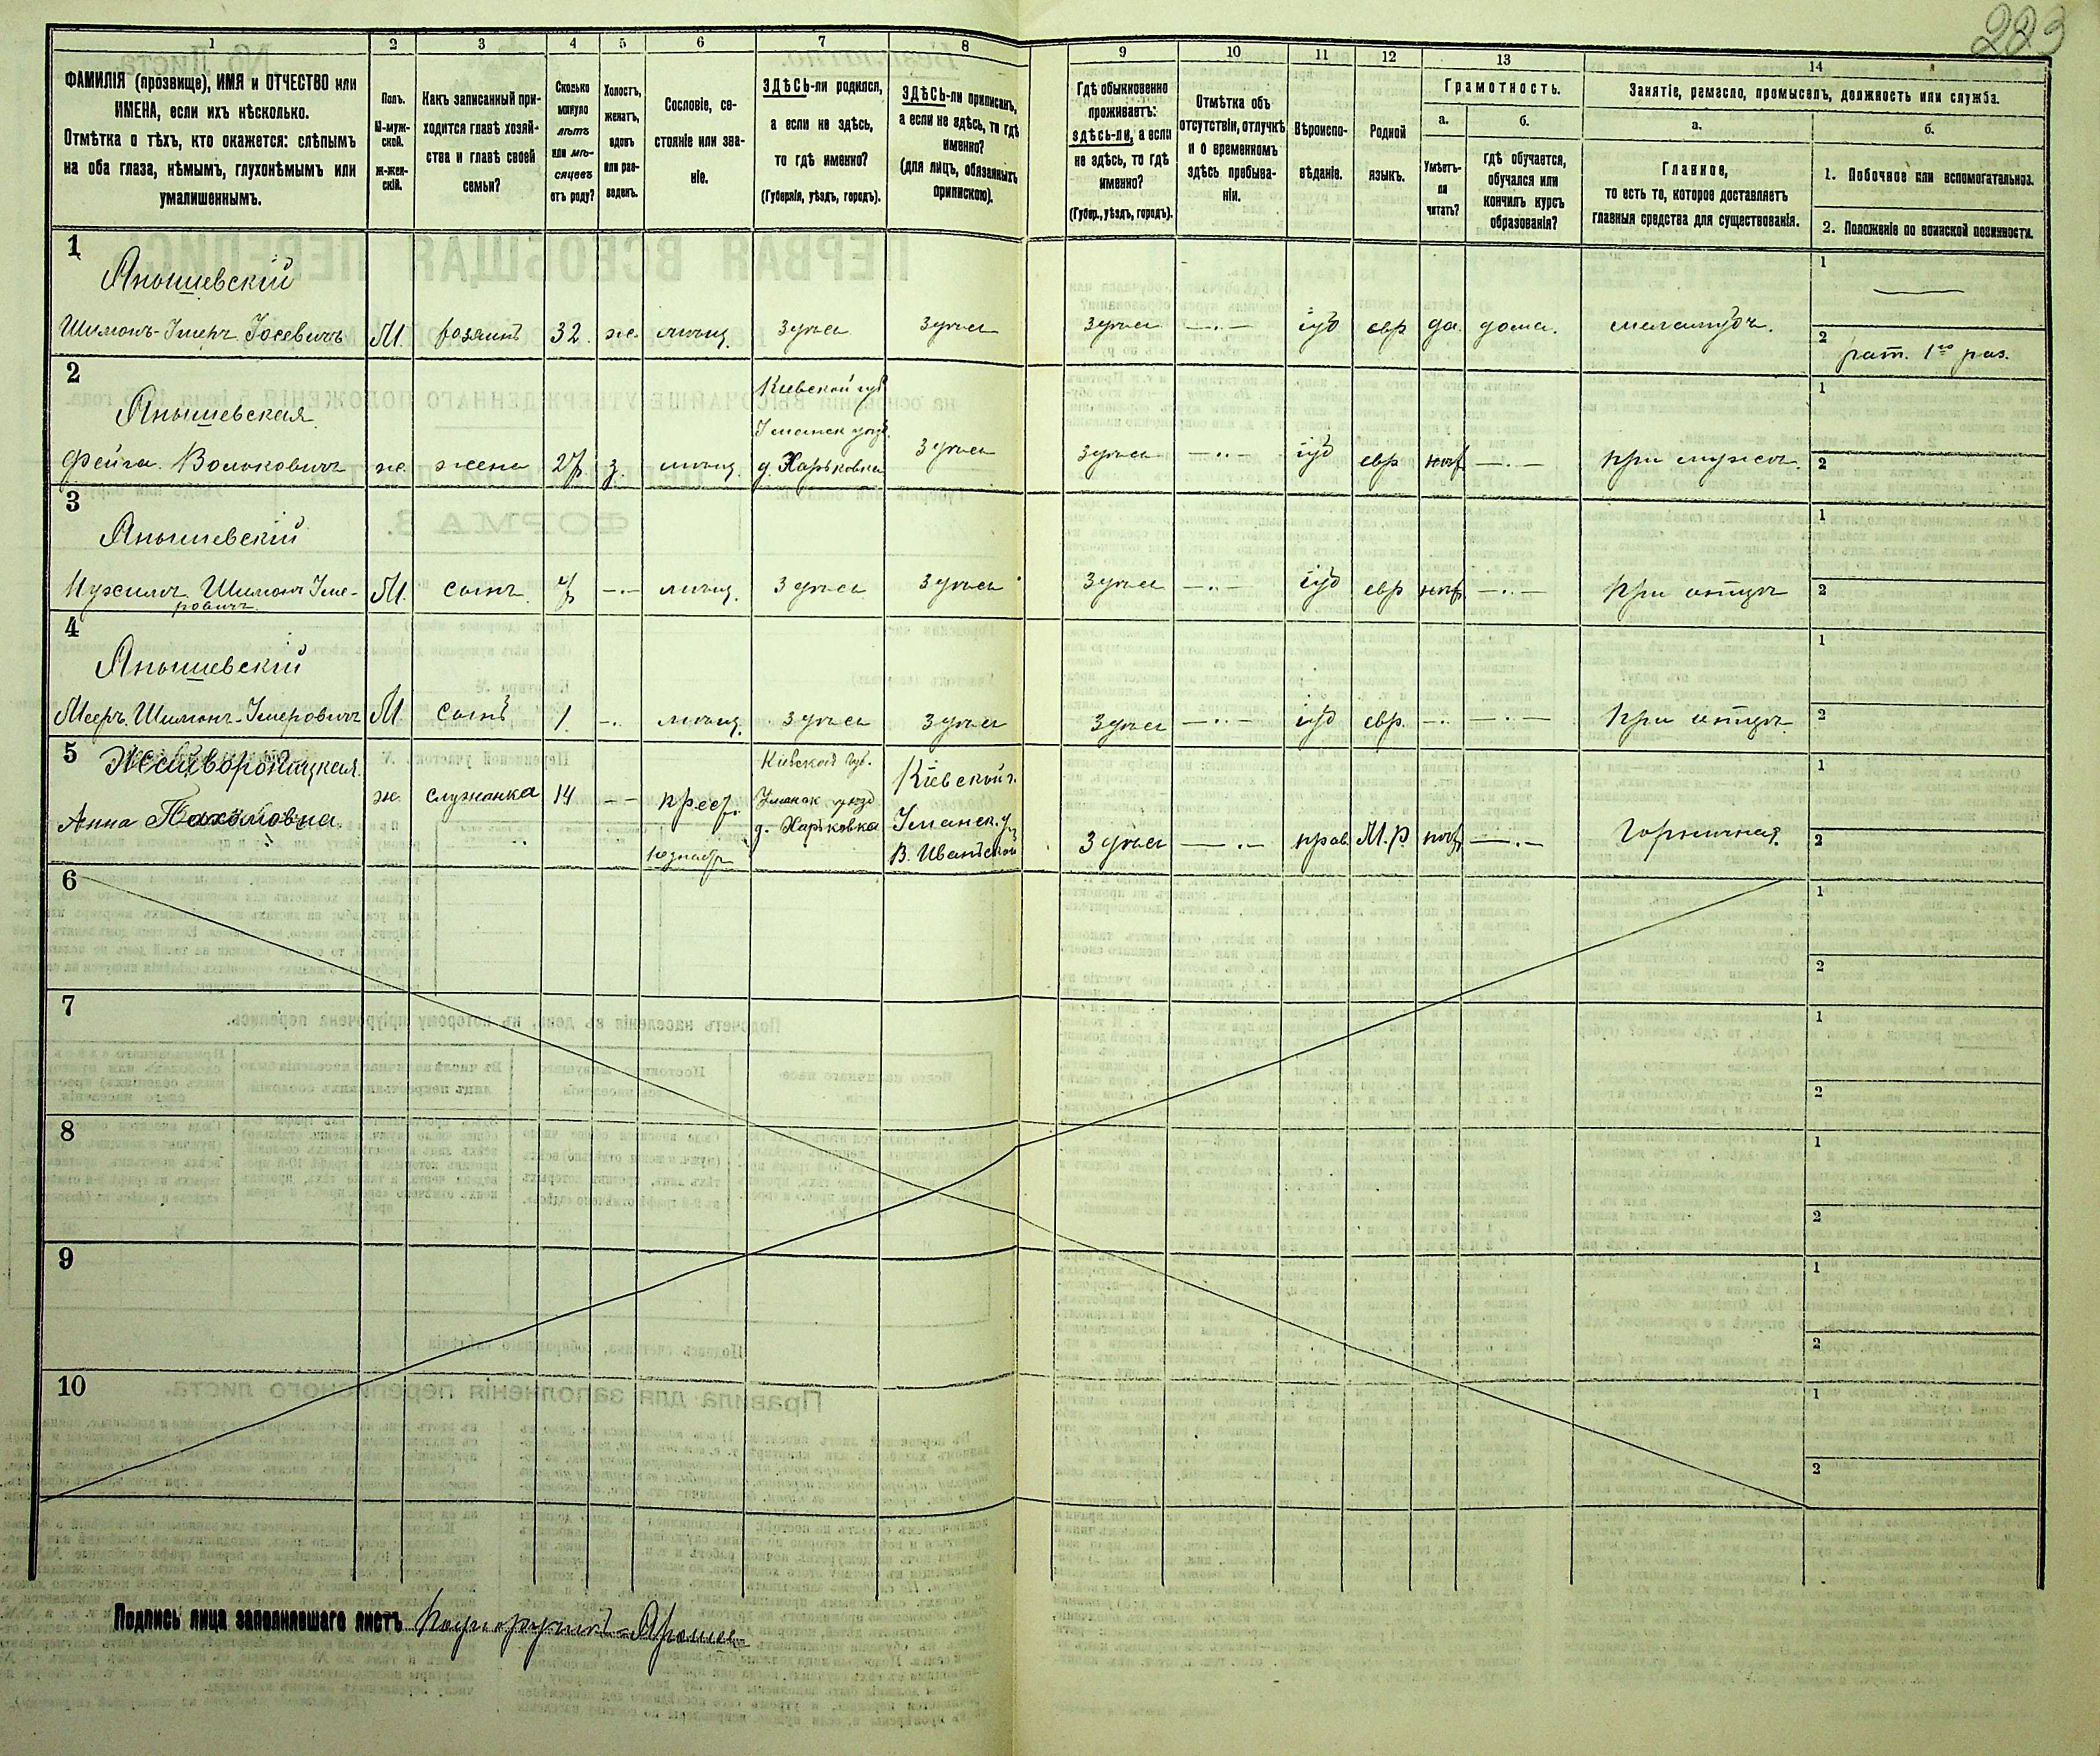 223
1
2
3
4
5
6
7
8
9
10
11
12
13
14
ФАМИЛІЯ (прозвище), ИМЯ и ОТЧЕСТВО или
ИМЕНА, если ихъ нѣсколько.
Отмѣтка о тѣхъ, кто окажется: слѣпымъ
на оба глаза, нѣмымъ, глухонѣмымъ или
умалишеннымъ.
Полъ.
М-муж-
ской.
ж-жен-
скій.
Какъ записанный при-
ходится главѣ хозяй-
ства и главѣ своей
семьи?
Сколько
минуло
лѣтъ
или мѣ-
сяцевъ
отъ роду?
Холостъ,
женатъ,
вдовъ
или раз-
веденъ.
Сословіе, со-
стояніе или зва-
ніе.
ЗДѢСЬ-ли родился,
а если не здѣсь,
то гдѣ именно?
(Губернія, уѣздъ, городъ).
ЗДѢСЬ-ли приписанъ,
а если не здѣсь, то гдѣ
именно?
(для лицъ, обязанныхъ
припискою).
Гдѣ обыкновенно
проживаетъ:
здѣсь-ли, а если
не здѣсь, то гдѣ
именно?
(Губер., уѣздъ, городъ).
Отмѣтка объ
отсутствіи, отлучкѣ
и о временномъ
здѣсь пребыва-
ніи.
Вѣроиспо-
вѣданіе.
Родной
языкъ.
Грамотность.
а.
б.
Умѣетъ-
ли
читать?
гдѣ обучается,
обучался или
кончилъ курсъ
образованія?
Занятіе, ремесло, промыселъ, должность или служба.
а.
б.
Главное,
то есть то, которое доставляетъ
главныя средства для существованія.
1. Побочное или вспомогательное.
2. Положеніе по воинской повинности.
1
Янышевскій
Шимонъ-Імеръ Іосевичъ М. хозяинъ 32. ж. мѣщ. здѣсь здѣсь здѣсь іуд евр да. дома. меламдъ.
1
2 рат. 1го раз.
2
Янышевская
Кіевской губ
Уманск уѣзд.
Фейга Волоковичъ ж. жена 27 з. мѣщ. д. Харьковка здѣсь здѣсь іуд евр нѣт при мужѣ.
1
2
3
Янышевскій
Нухимъ Шимонъ Іме-
ровичъ М. сынъ 7 мѣщ. здѣсь здѣсь здѣсь іуд евр нѣт при отцѣ
1
2
4
Янышевскій
Мееръ Шимонъ-Імеровичъ М сынъ 1. мѣщ. здѣсь здѣсь здѣсь іуд евр. при отцѣ
1
2
5
Анна Пахомовна. ж. служанка 14 крест.
Кіевской губ.
Уманск уѣзд
д. Харьковка
Кіевской г.
Уманск. у.
В.
здѣсь прав. М.р нѣт Горничная.
1
2
6
1
2
7
1
2
8
1
2
9
1
2
10
1
2
Подпись лица заполнившаго листъ